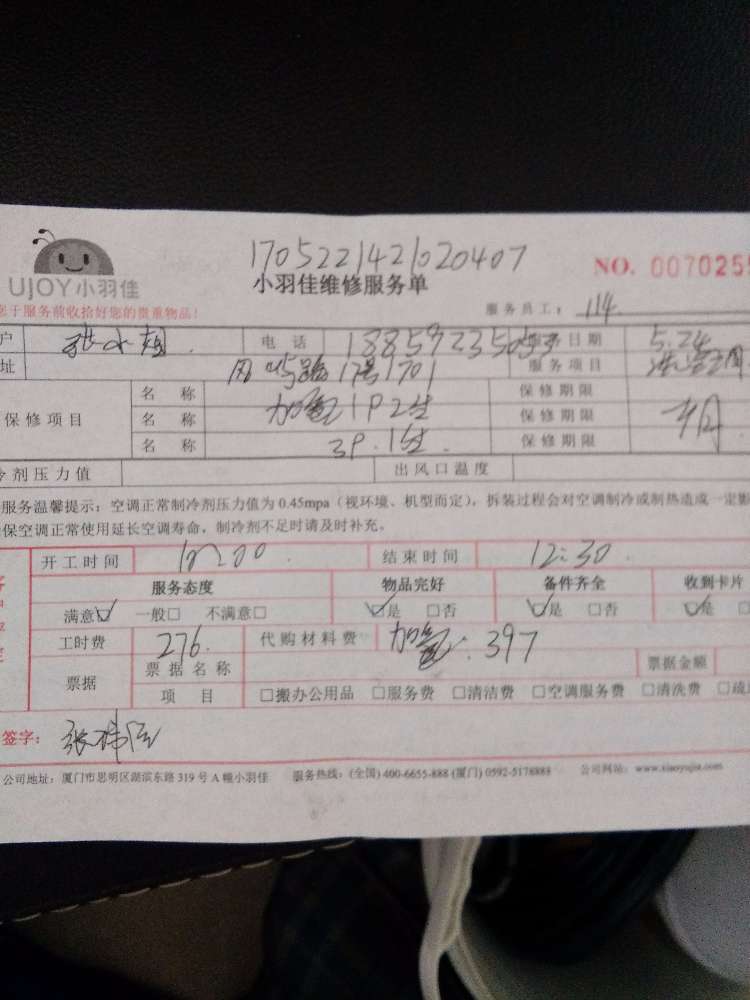 1705221421020407
NO. 007025
UJOY小羽佳
小羽佳维修服务单
于服务前收拾好您的贵重物品!
服务员工: 114
户 张小姐 电 话 日期 5.24
址 17号1701 服务项目
保修项目 名 称 加氟1P2台 保修期限
名 称 保修期限
名 称 3P.1台 保修期限
剂压力值 出风口温度
服务温馨提示:空调正常制冷剂压力值为 0.45mpa(视环境、机型而定),拆装过程会对空调制冷或制热造成一定
保空调正常使用延长空调寿命,制冷剂不足时请及时补充。
开工时间 结束时间 12:30
服务态度 物品完好 备件齐全 收到卡片
满意☑ 一般□ 不满意□ ☑是 □否 ☑是 □否 ☑是
工时费 276. 代购材料费 加氟: 397
票据 票据名称 票据金额
项 目 □搬办公用品 □服务费 □清洁费 □空调服务费 □清洗费
签字:
公司地址:厦门市思明区湖滨东路 319 号 A 幢小羽佳 服务热线:(全国) 400-6655-888 (厦门) 0592-5178888 公司网站: